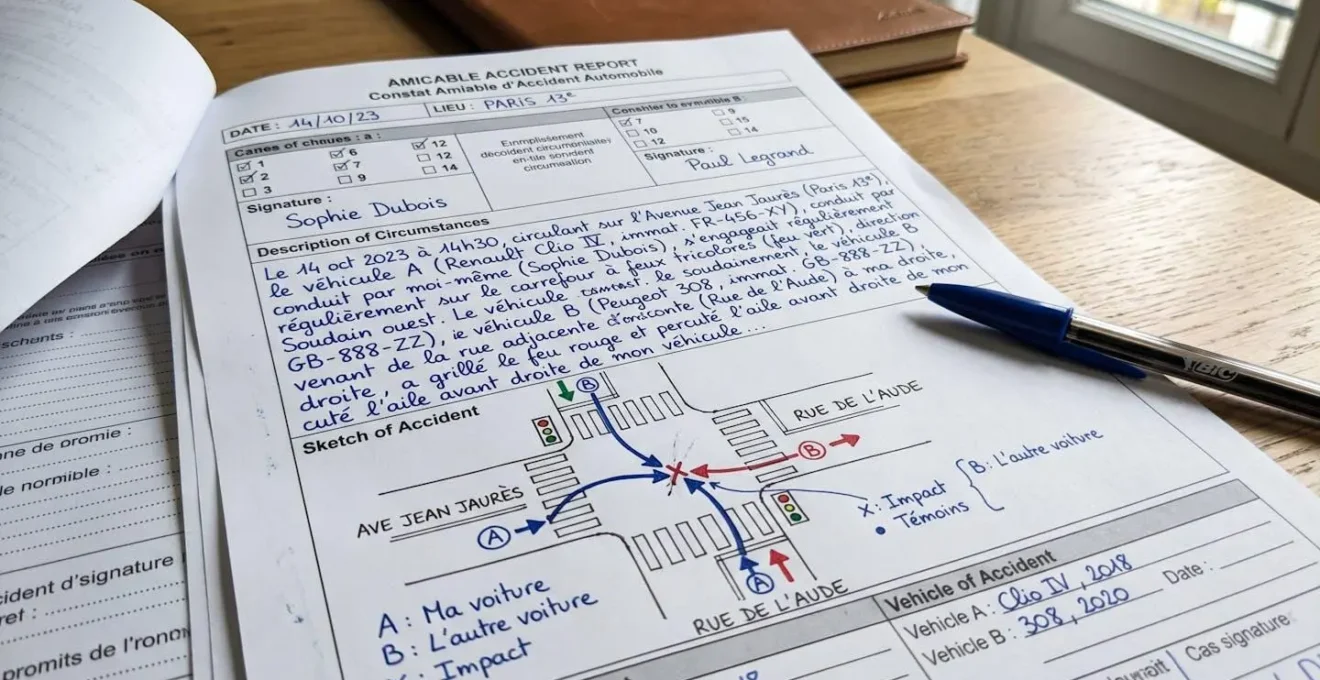 AMICABLE ACCIDENT REPORT
Constat Amiable d'Accident Automobile
DATE : 14/10/23
LIEU : PARIS 13e
Canes of chnues : a :
1 6 12
2 7 12
3 9 14
Signature :
Sophie Dubois
Einmplissement
décoident circumentaiey
en-tile sondent
circumisation
Conshler to evmuible B
7 9
10 15
12 14
Signature :
Paul Legrand
Description of Circumstances
Le 14 oct 2023 à 14h30, circulant sur l'Avenue Jean Jaurès (Paris 13e),
le véhicule A (Renault Clio IV, immat. FR-456-XY), conduit par
conduit par moi-même (Sophie Dubois), s'engageait régulièrement
régulièrement sur le carrefour à feux tricolores (feu vert), direction
Soudain ouest. Le véhicule le soudainement, le véhicule B
GB-888-ZZ), ie véhicule B (Peugeot 308, immat. GB-888-ZZ),
venant de la rue adjacente (Rue de l'Aude) à ma droite,
droite, a grillé le feu rouge et percuté l'aile avant droite de mon
cuté l'aile avant droite de mon véhicule...
Sketch of Accident
B
RUE DE L'AUDE
B
AVE JEAN JAURÈS
A
X : Impact
• Témoins
B : L'autre voiture
A
RUE DE L'AUDE
A : Ma voiture
B : L'autre voiture
X : Impact
Vehicle of Accident
Vehicle A : Clio IV, 2018
Vehicle B : 308, 2020
Date :
Cas signature:
schents :
ne de promie :
le normible :
cident d'signature
ref :
promits de l'ronm
BIC